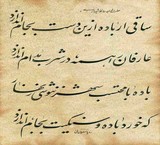 ساقی ار باده ازین دست بجام اندازد
عارفان را همه در شرب مدام اندازد
باده با محتسب شهر ننوشی
که خورد باده و سنگت بجام اندازد